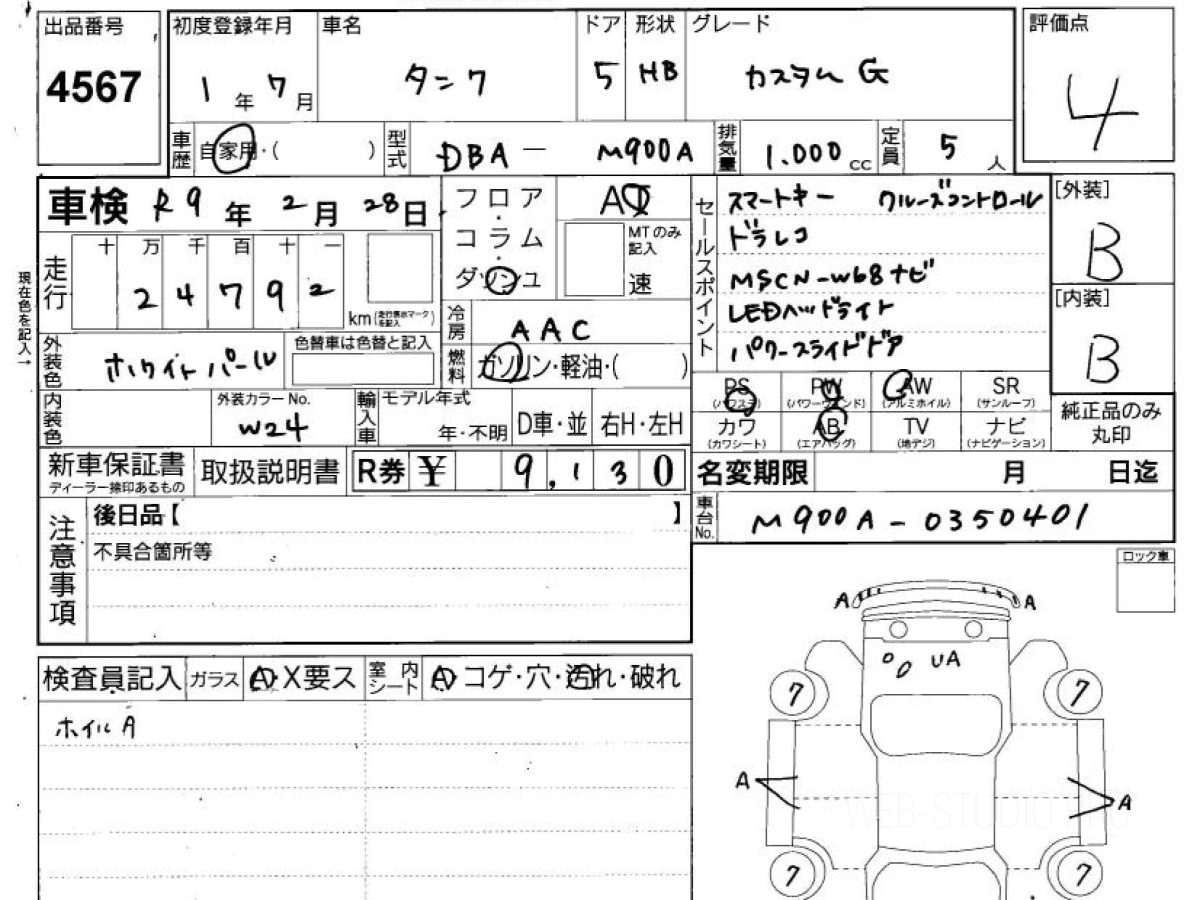 出品番号 初度登録年月 車名 ドア 形状 グレード 評価点
4567 1年 7月 タンク 5 HB カスタムG 4
車歴 自家用・( ) 型式 DBA-M900A 排気量 1.000cc 定員 5人
車検 R9年 2月 28日 フロア・コラム・ダッシュ AT セールスポイント スマートキー クルーズコントロール [外装]
ドラレコ B
現在色を記入→ 走行 十 万 千 百 十 一 MTのみ記入 速 MSCN-W68ナビ
2 4 7 9 2 km(走行表示マークを記入) LEDヘッドライト [内装]
外装色 ホワイトパール 色替車は色替と記入 冷房 AAC パワースライドドア B
燃料 ガソリン・軽油・( )
内装色 外装カラーNo. W24 輸入車 モデル年式 年・不明 D車・並 右H・左H
PS(パワステ) PW(パワーウィンド) AW(アルミホイル) SR(サンルーフ)
カワ(カワシート) AB(エアバッグ) TV(地デジ) ナビ(ナビゲーション) 純正品のみ丸印
新車保証書 ディーラー捺印あるもの 取扱説明書 R券 ¥ 9,130 名変期限 月 日迄
注意事項 後日品【 】 車台No. M900A-0350401
不具合箇所等
ロック車
A A
UA
検査員記入 ガラス A・X要ス 室内シート A・コゲ・穴・汚れ・破れ
7 7
ホイルA
A A
WEB-STUDIO
7 7